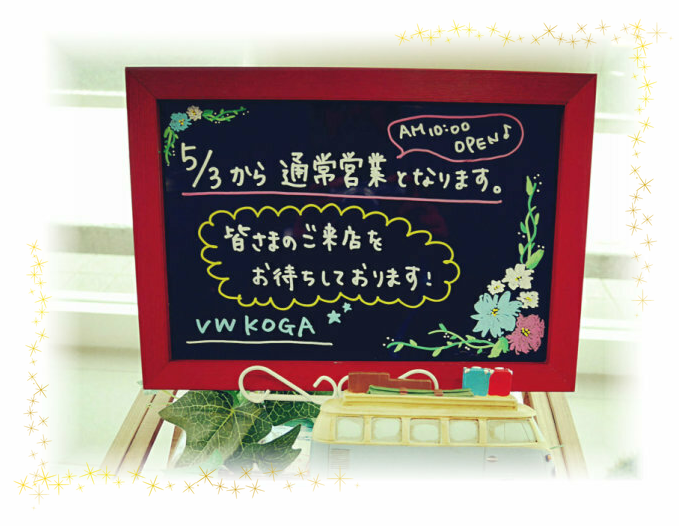 AM 10:00
OPEN♪
5/3から 通常営業となります。
皆さまのご来店を
お待ちしております!
VW KOGA